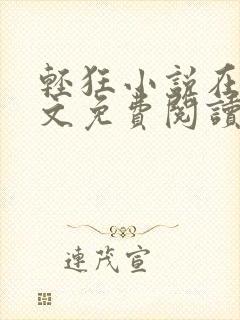 輕狂小說在
文免費閱讀
連茂宣